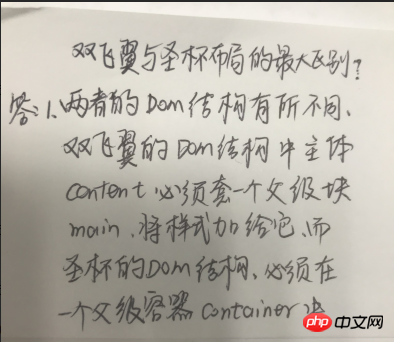 双飞翼与圣杯布局的最大区别?
答:1、两者的Dom结构有所不同、
双飞翼的Dom结构中主体
content 必须套一个父级块
main、将样式加给它、而
圣杯的Dom结构、必须在
一个父级容器 container 中
php 中文网